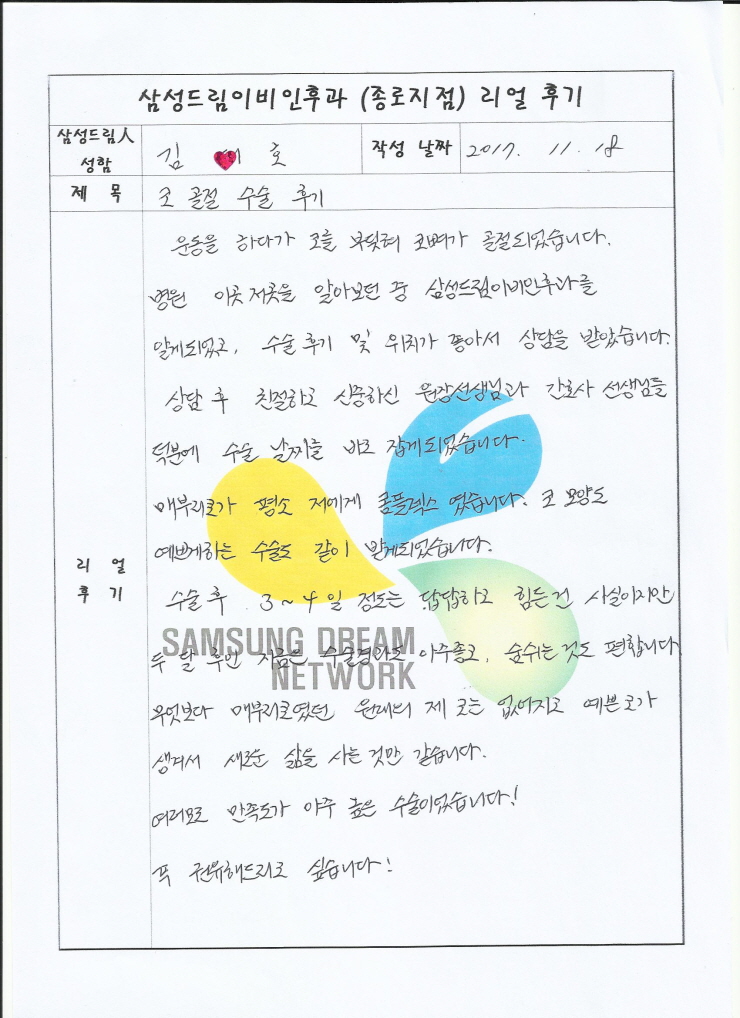 삼성드림이비인후과 (종로지점) 리얼 후기
삼성드림人 성함
김 호
작성 날짜
2017. 11. 18
제 목
코 골절 수술 후기
리 얼 후 기
운동을 하다가 코를 부딪혀 코뼈가 골절되었습니다.
병원 이곳 저곳을 알아보던 중 삼성드림이비인후과를
알게되었고, 수술 후기 및 위치가 좋아서 상담을 받았습니다.
상담 후 친절하고 신중하신 원장선생님과 간호사 선생님들
덕분에 수술 날짜를 바로 잡게되었습니다.
매부리코가 평소 저에게 콤플렉스 였습니다. 코 모양도
예쁘게하는 수술도 같이 받게되었습니다.
수술 후 3~4일 정도는 답답하고 힘든건 사실이지만
SAMSUNG DREAM
NETWORK
두 달 후인 지금은 수술경과도 아주좋고, 숨쉬는 것도 편합니다
무엇보다 매부리코였던 원래의 제 코는 없어지고 예쁜코가
생겨서 새로운 삶을 사는 것만 같습니다.
여러모로 만족도가 아주 높은 수술이었습니다!
꼭 권유해드리고 싶습니다!